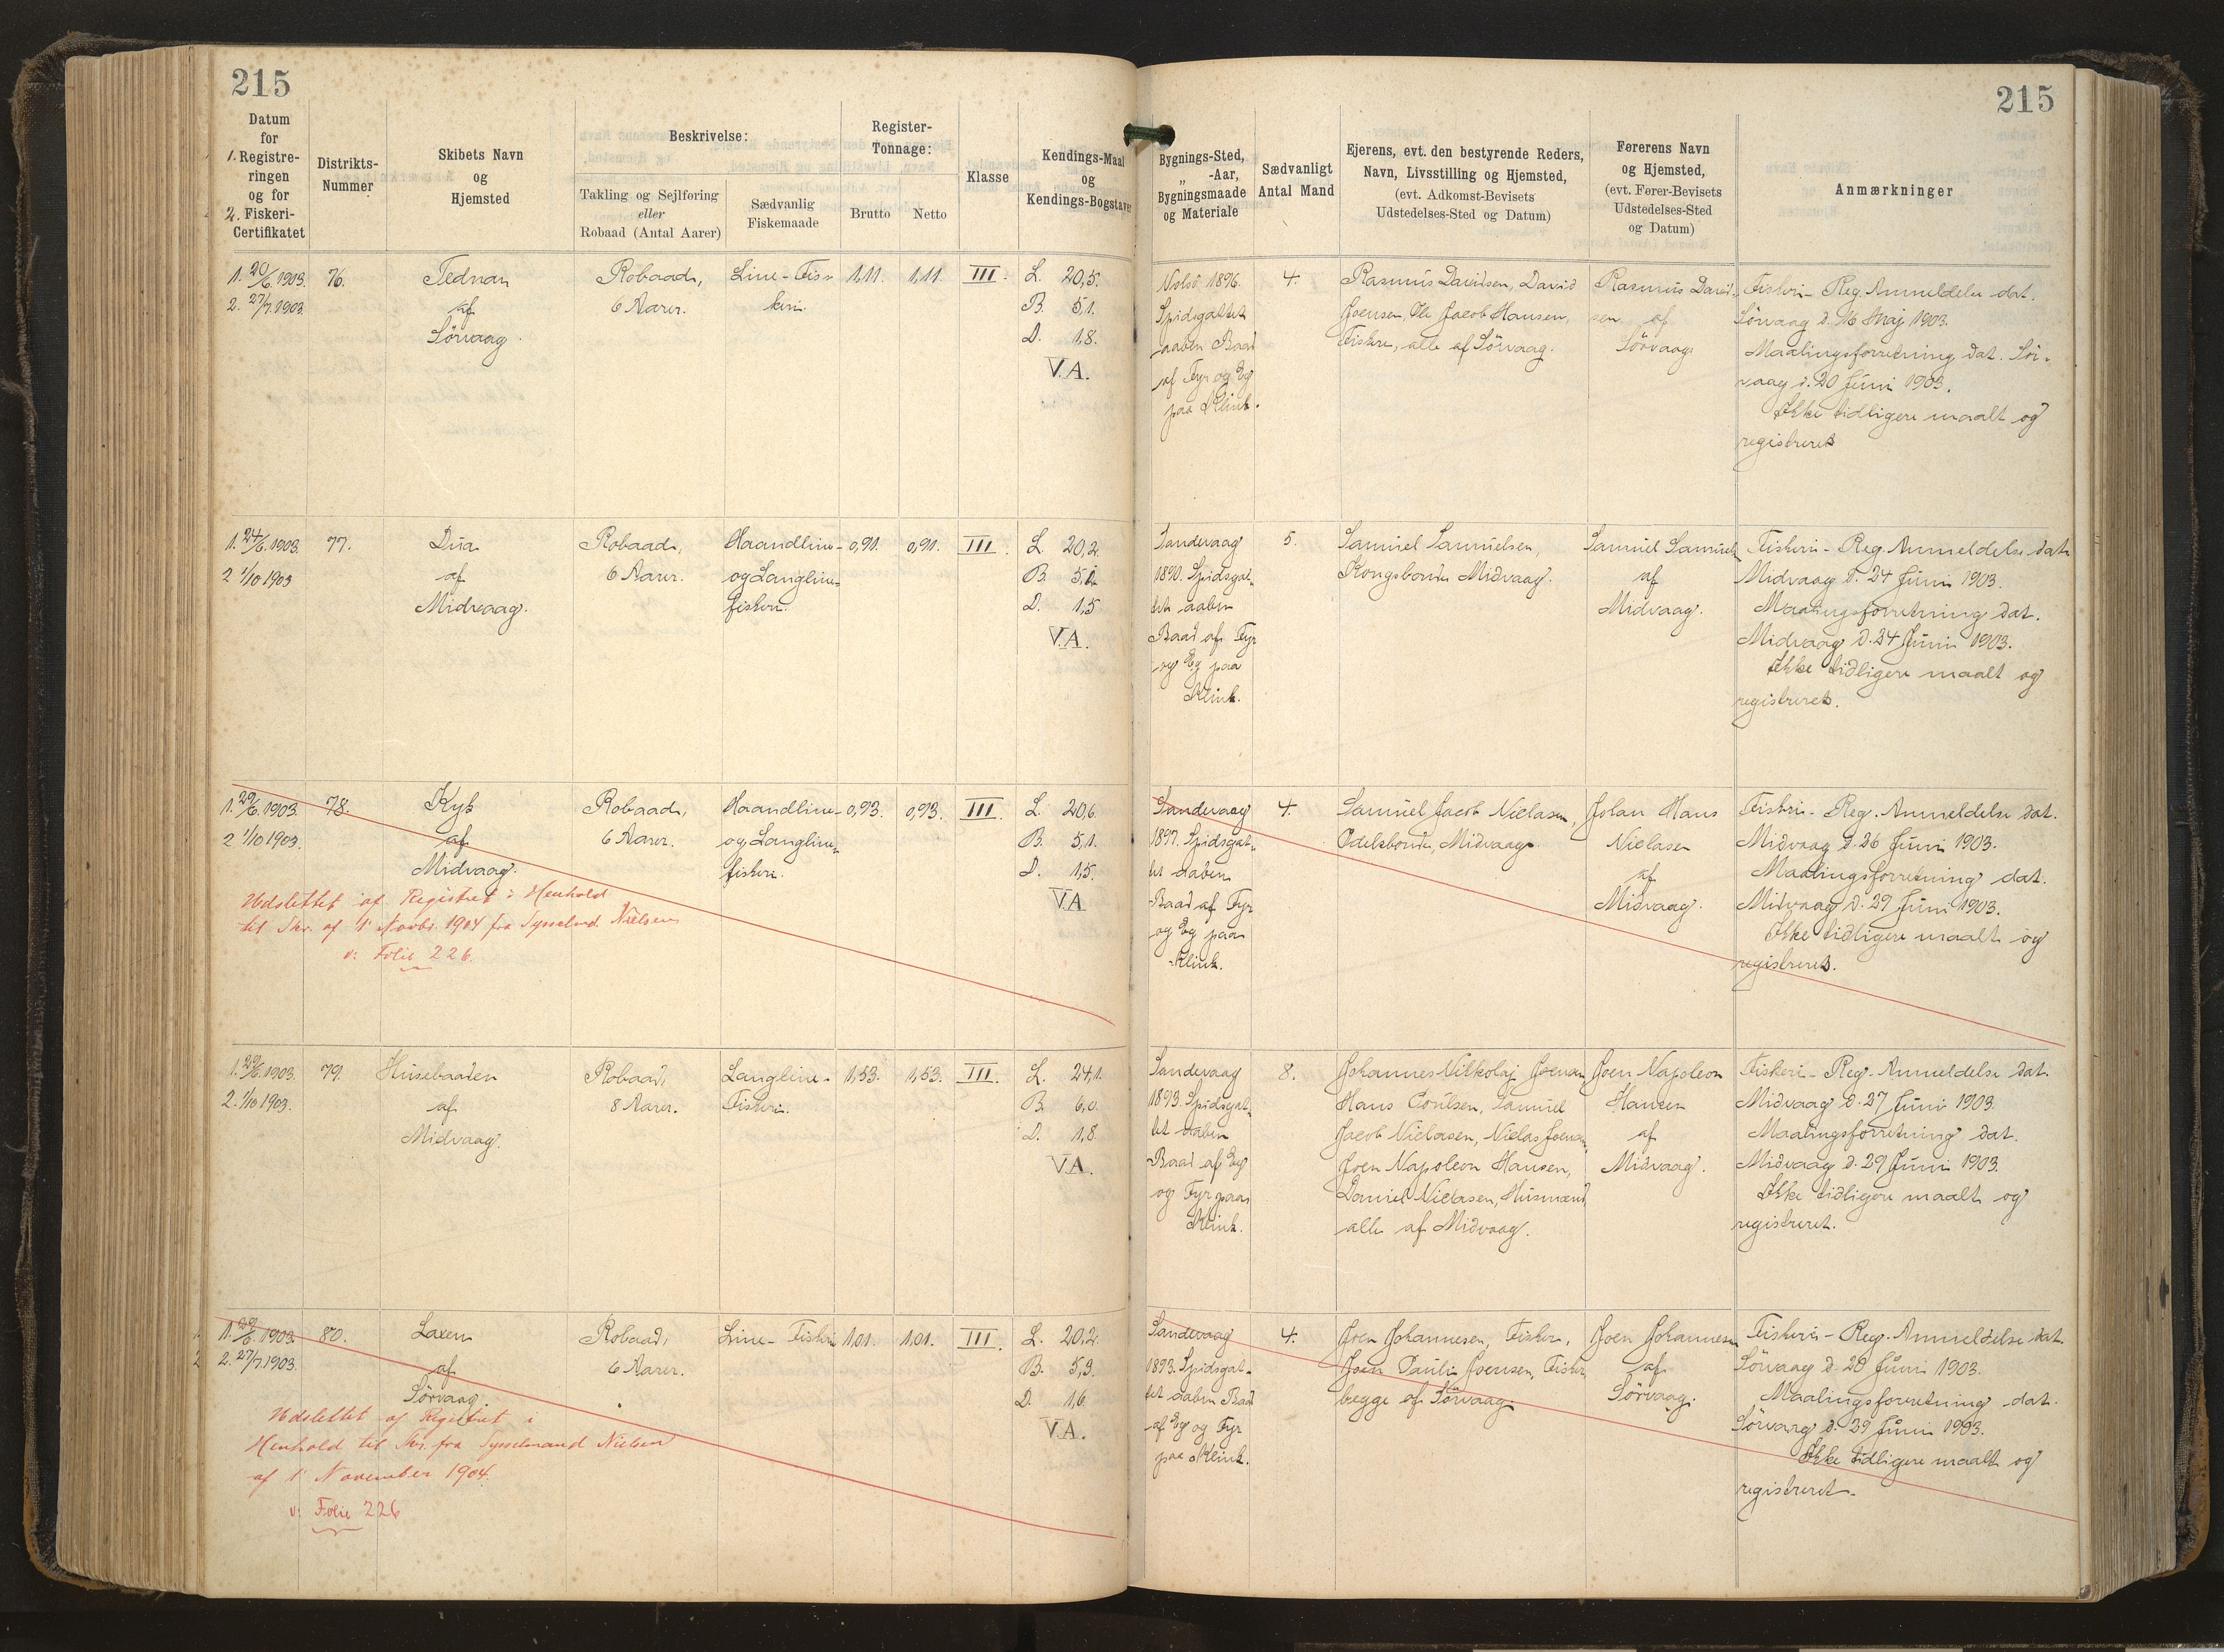 215
215
Datum
for
1. Registre-
ringen
og for
2. Fiskeri-
Certifikatet
Distrikts-
Nummer
Skibets Navn
og
Hjemsted
Beskrivelse:
Takling og Sejlføring
eller
Robaad (Antal Aarer)
Sædvanlig
Fiskemaade
Register-
Tonnage:
Brutto
Netto
Klasse
Kendings-Maal
og
Kendings-Bogstaver
Bygnings-Sted,
„ -Aar,
Bygningsmaade
og Materiale
Sædvanligt
Antal Mand
Ejerens, evt. den bestyrende Reders,
Navn, Livsstilling og Hjemsted,
(evt. Adkomst-Bevisets
Udstedelses-Sted og Datum)
Førerens Navn
og Hjemsted,
(evt. Fører-Bevisets
Udstedelses-Sted
og Datum)
Anmærkninger
1. 20/6 1903.
2. 27/7 1903.
76.
Tednan
af
Sörvaag.
Robaad,
6 Aarer.
Line-Fis-
keri.
1,11.
1,11.
III.
L. 20,5.
B. 5,1.
D. 1,8.
V.A.
Nolsö 1896.
Spidsgattet
aaben Baad
af Fyr og Eg
paa Klink.
4.
Rasmus Davidsen, David
Joensen, Ole Jacob Hansen,
Fiskere, alle af Sörvaag.
Rasmus David-
sen af
Sörvaag
Fiskeri-Reg. Anmeldelse dat.
Sörvaag d. 16 Maj 1903.
Maalingsforretning dat. Sör-
vaag d. 20 Juni 1903.
Ikke tidligere maalt og
registreret
1. 24/6 1903.
2 1/10 1903
77.
Dua
af
Midvaag.
Robaad,
6 Aarer.
Haandline-
og Langline-
fiskeri.
0,91.
0,91.
III.
L. 20,2.
B. 5,1.
D. 1,5
V.A.
Sandevaag
1890. Spidsgat-
tet aaben
Baad af Fyr
og Eg paa
Klink.
5.
Samuel Samuelsen,
Kongsbonde Midvaag.
Samuel Samuels
af
Midvaag.
Fiskeri-Reg. Anmeldelse dat.
Midvaag d. 24 Juni 1903.
Maalingsforretning dat.
Midvaag d. 24 Juni 1903.
Ikke tidligere maalt og
registreret.
1. 29/6 1903.
2 1/10 1903.
78.
Kyk
af
Midvaag.
Robaad,
6 Aarer.
Haandline-
og Langline-
fiskeri.
0,93.
0,93.
III.
L. 20,6.
B. 5,1.
D. 1,5.
V.A
Udslettet af Registret i Henhold
til Skr. af 1' Novbr. 1904 fra Sysselmd. Nielsen
v: Folie 226.
Sandevaag
1897. Spidsgat-
tet aaben
Baad af Fyr
og Eg paa
Klink.
4.
Samuel Jacob Niclasen,
Odelsbonde, Midvaag.
Johan Hans
Niclasen
af
Midvaag.
Fiskeri-Reg. Anmeldelse dat.
Midvaag d. 26 Juni 1903.
Maalingsforretning dat.
Midvaag d. 29 Juni 1903.
Ikke tidligere maalt og
registreret.
1. 29/6 1903.
2. 1/10 1903.
79.
Husebaaden
af
Midvaag.
Robaad,
8 Aarer.
Langline-
Fiskeri.
1,53.
1,53.
III.
L. 24,1.
B. 6,0.
D. 1,8
V.A.
Sandevaag
1893. Spidsgat-
tet aaben
Baad af Eg
og Fyr paa
Klink.
8.
Johannes Nikkolaj Joensen
Hans Poulsen, Samuel
Jacob Niclasen, Niclas Joensen,
Joen Napoleon Hansen,
Daniel Niclasen, Husmænd,
alle af Midvaag.
Joen Napoleon
Hansen
af
Midvaag.
Fiskeri-Reg. Anmeldelse dat.
Midvaag d. 27 Juni 1903.
Maalingsforretning dat.
Midvaag d. 29 Juni 1903.
Ikke tidligere maalt og
registreret.
1. 29/6. 1903.
2. 27/7. 1903.
80.
Laxen
af
Sörvaag.
Robaad,
6 Aarer.
Line-Fiskeri
1,01.
1,01.
III.
L. 20,2.
B. 5,3.
D. 1,6.
V.A.
Udslettet af Registret i
Henhold til Skr. fra Sysselmand Nielsen
af 1' November 1904.
v: Folie 226
Sandevaag
1893. Spidsgat-
tet aaben Baad
af Eg og Fyr
paa Klink.
4.
Joen Johannesen, Fisker,
Joen Pauli Joensen, Fisker
begge af Sörvaag.
Joen Johannesen
af
Sörvaag.
Fiskeri-Reg. Anmeldelse dat.
Sörvaag d. 20 Juni 1903.
Maalingsforretning dat.
Sörvaag d. 29 Juni 1903.
Ikke tidligere maalt og
registreret.